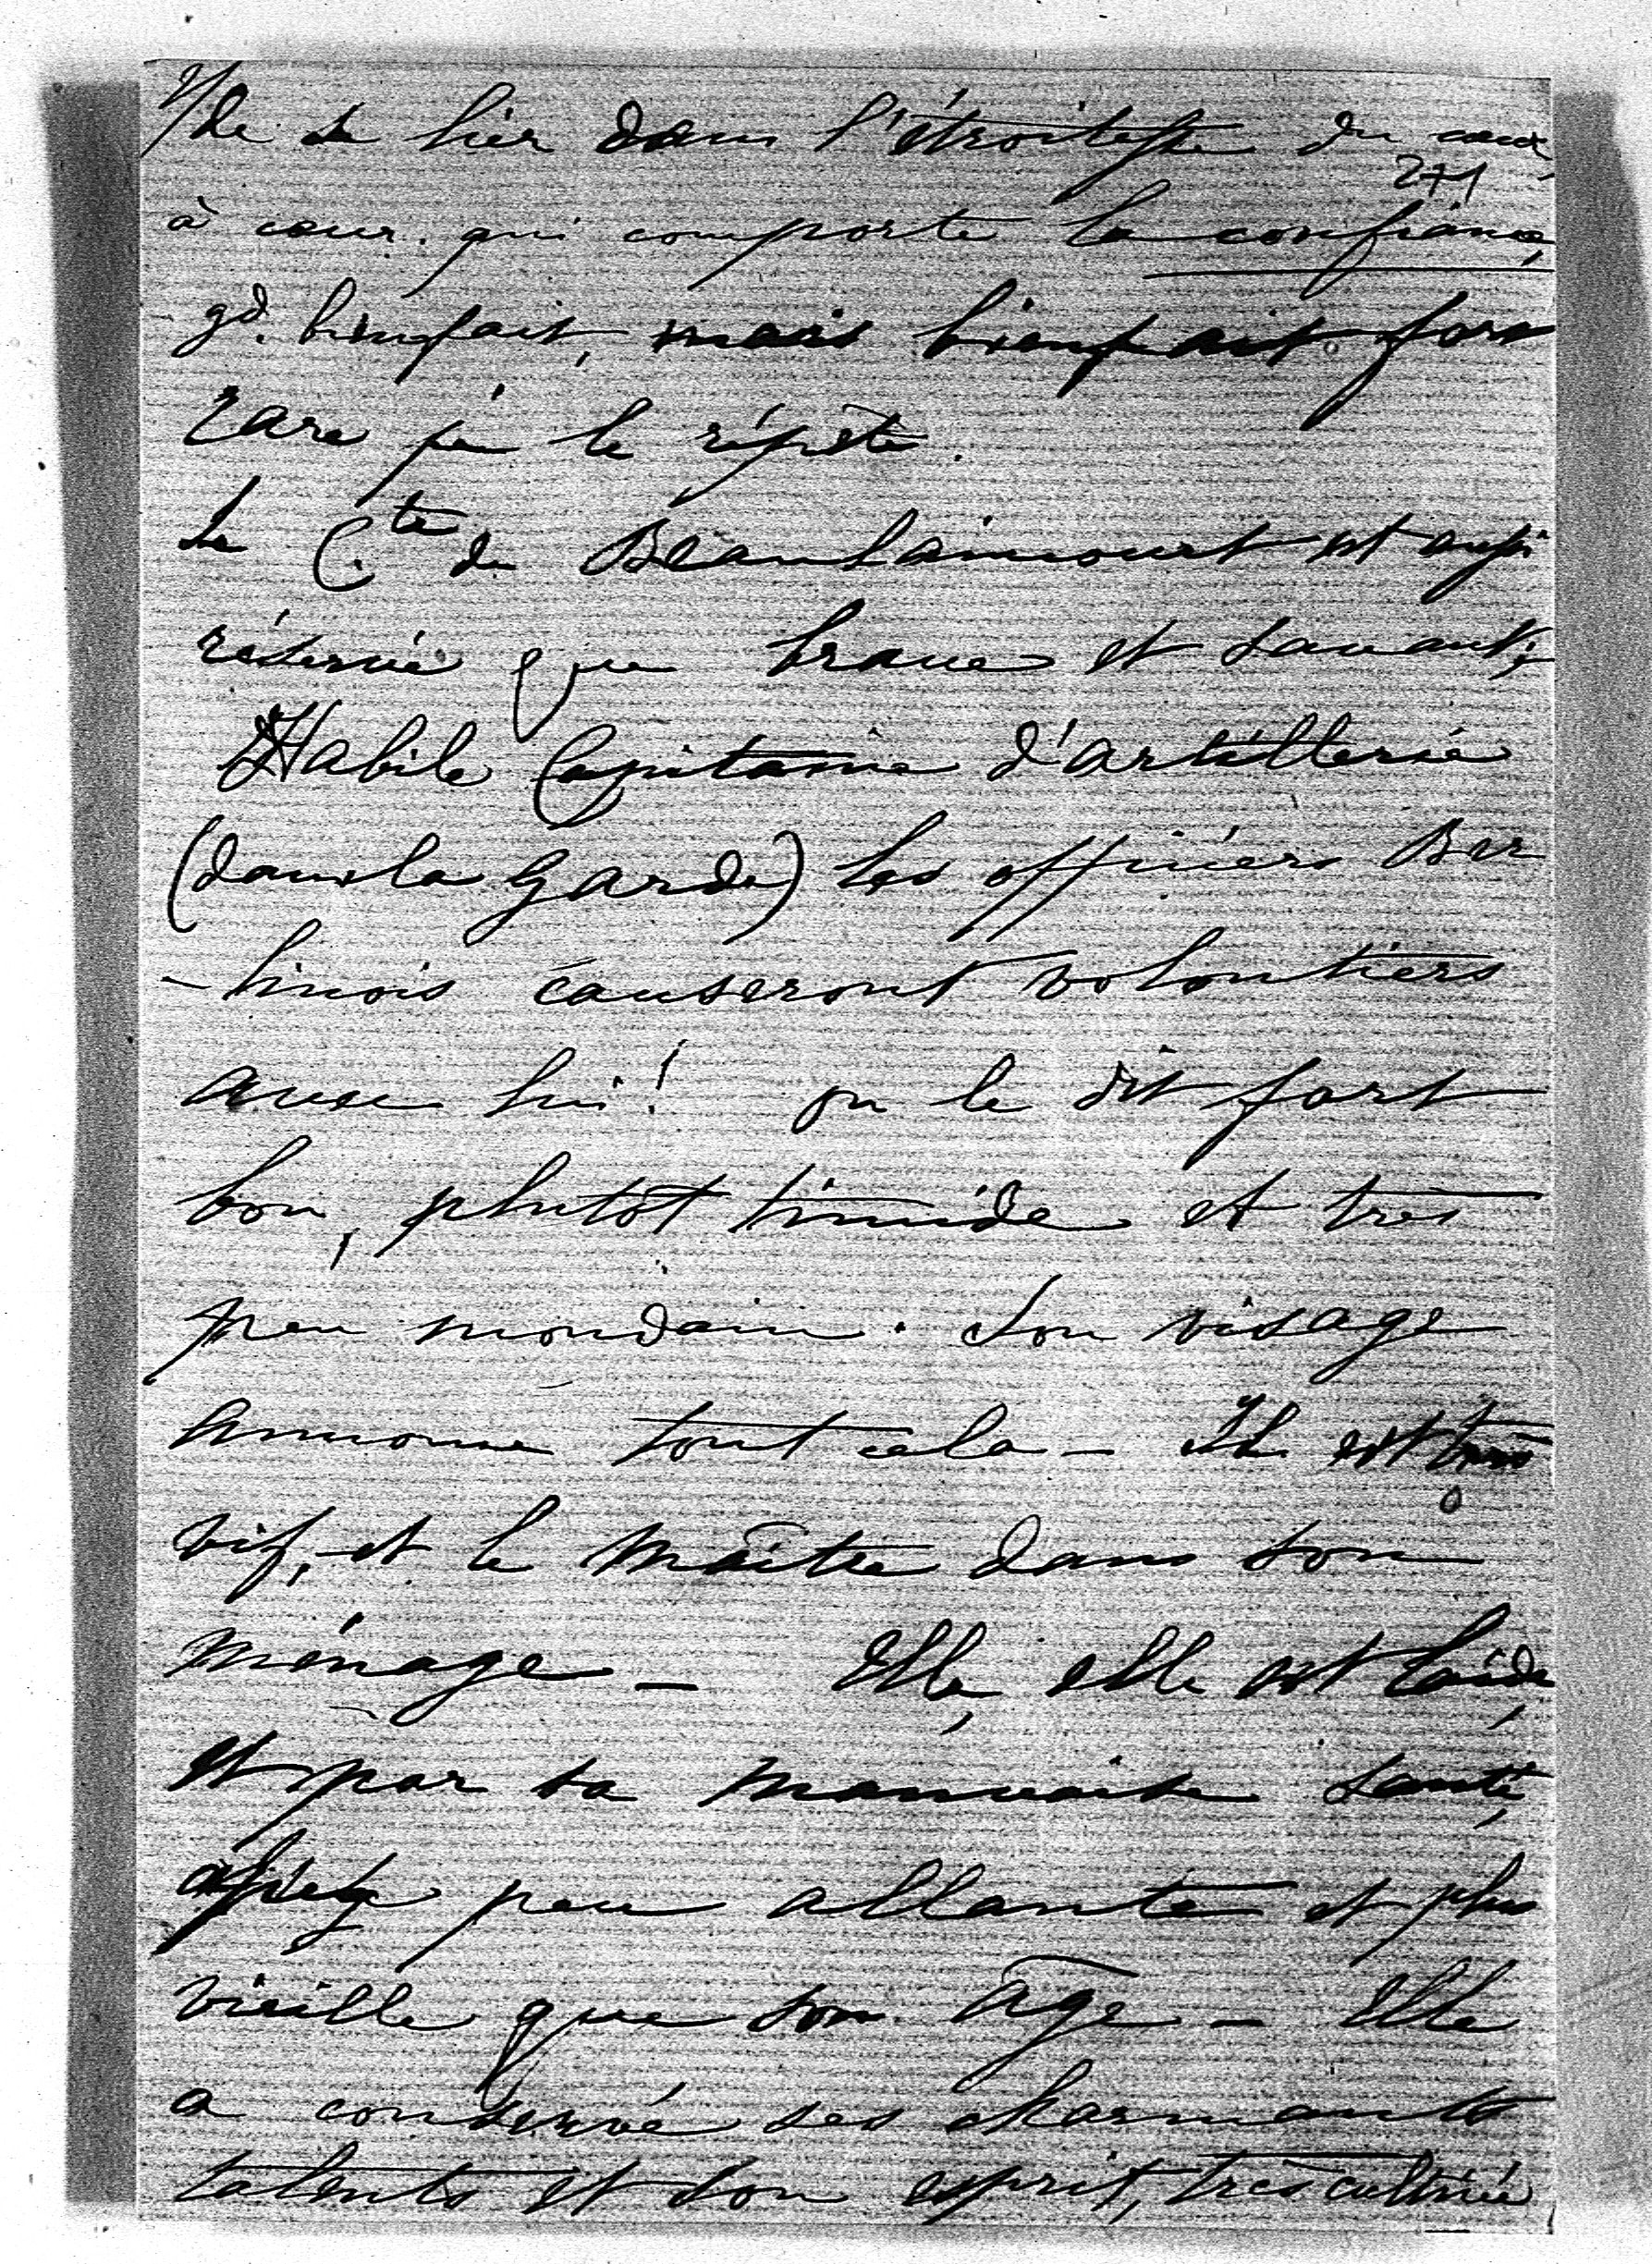 de se lier dans l'étroitesse du cœur
271
à cœur. qui comporte la confiance,
gd. bienfait, mais bienfait fort
rare je le répète.
Le Cte de Beaulaincourt est aussi
réservé que brave et savant;
Habile Capitaine d'artillerie
(dans la Garde) les officiers Ber
-linois causeront volontiers
avec lui! on le dit fort
bon, plutôt timide et très
peu mondain. Son visage
annonce tout cela - Il est très
vif, et le maître dans son
ménage - Elle, elle est laide,
et par sa mauvaise santé,
assez peu allante et plus
vieille que son âge - Elle
a conservé ses charmants
talents et son esprit, très cultivé